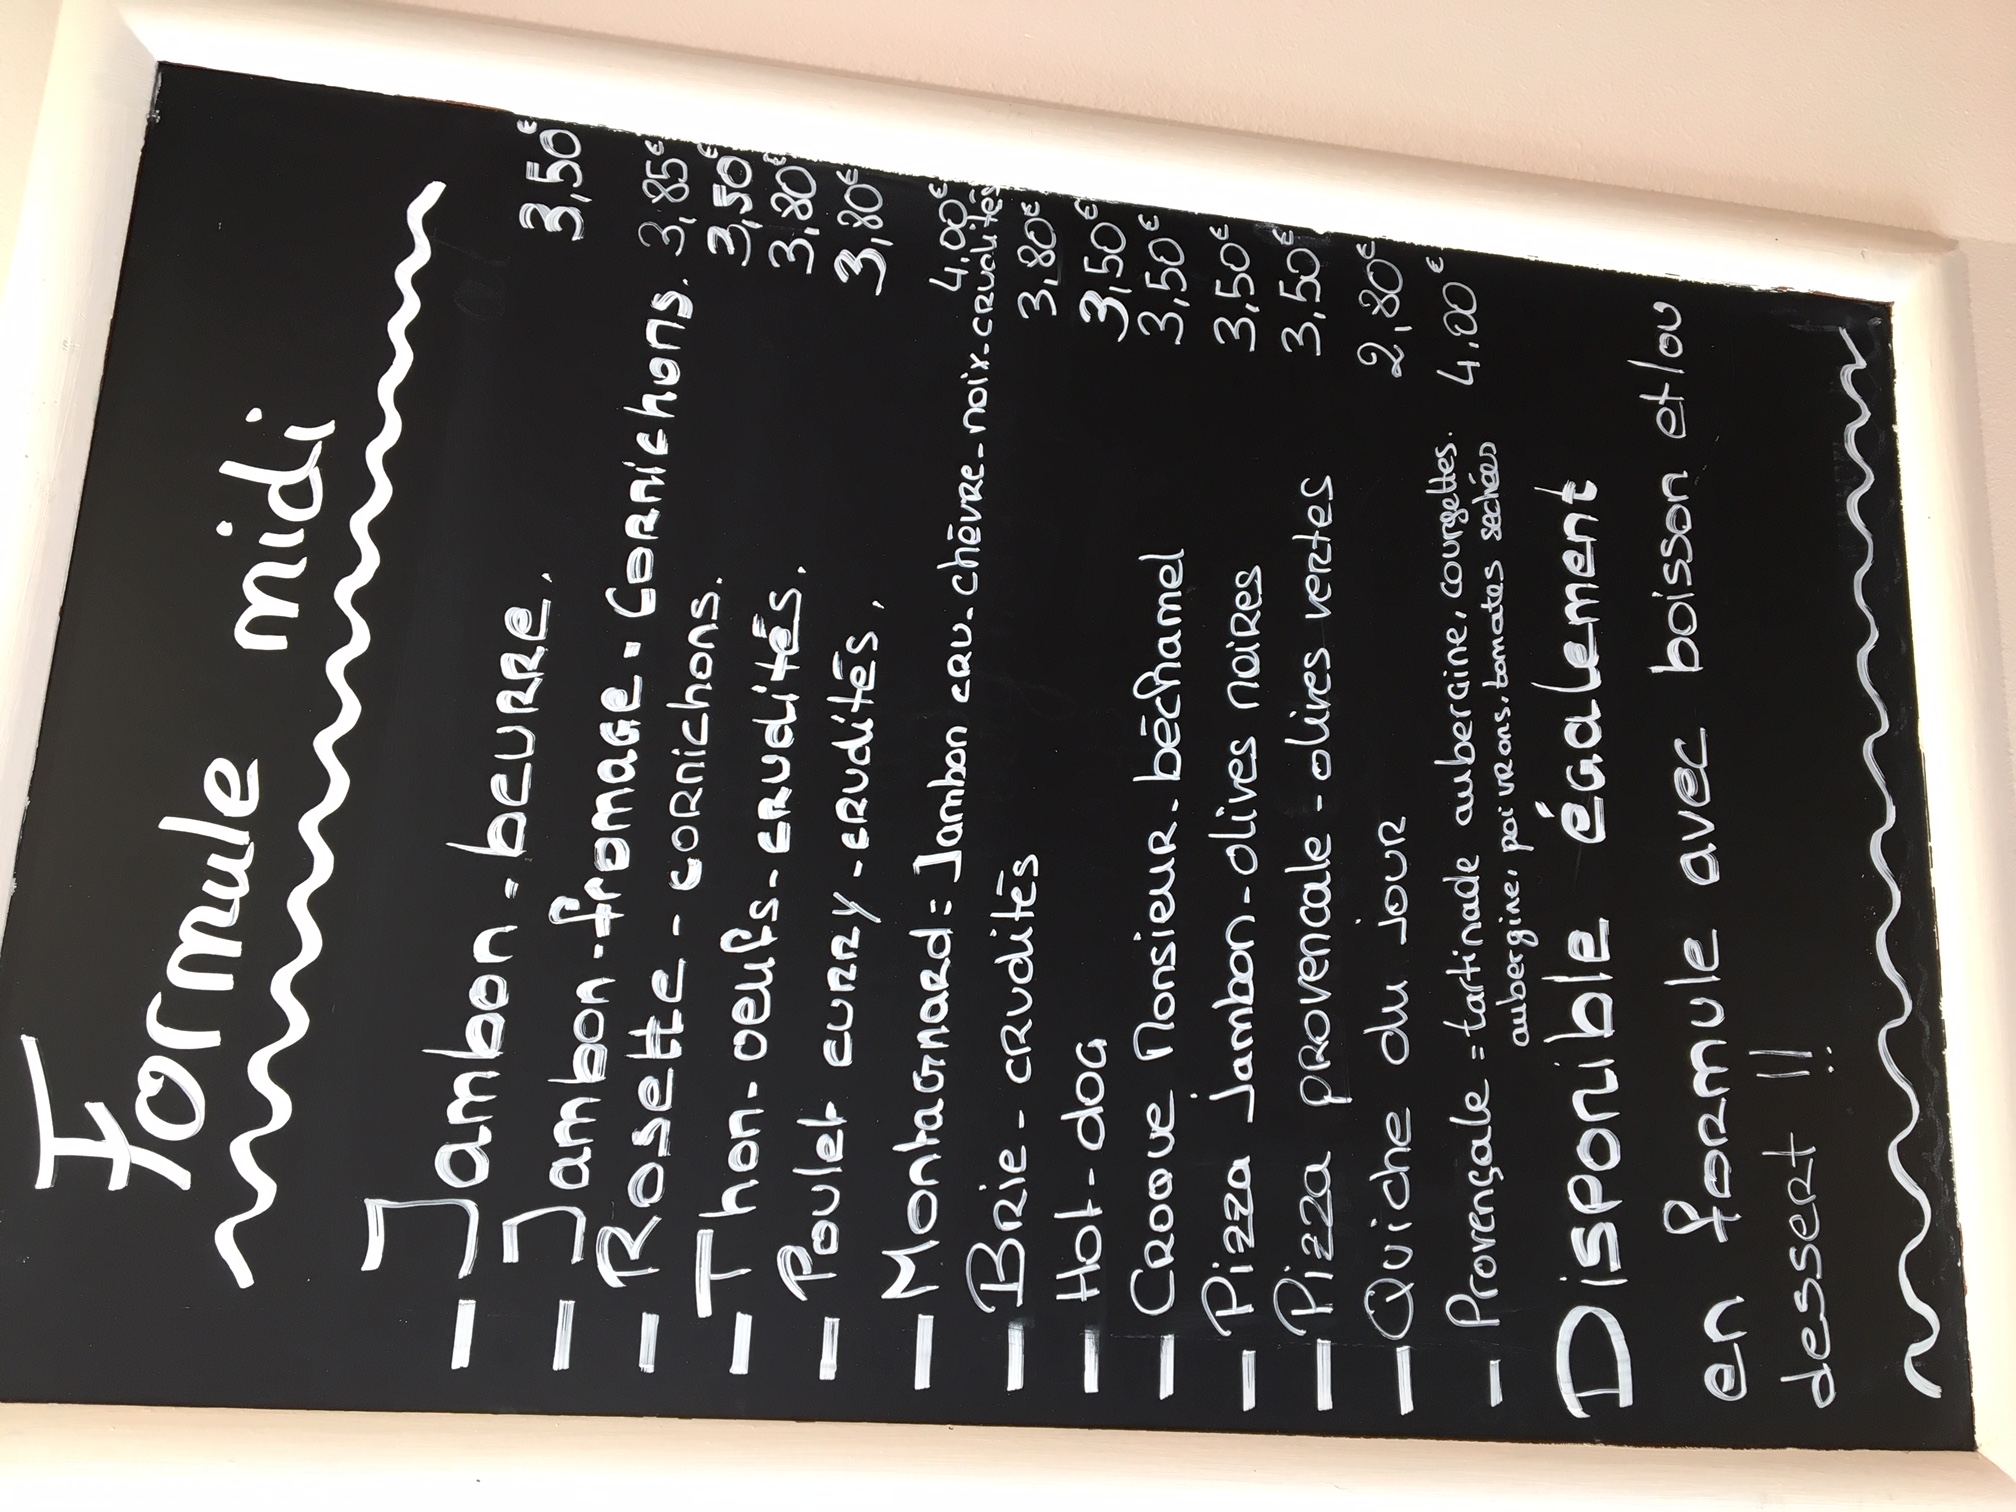 Formule midi
- Jambon - beurre. 3,50€
- Jambon - fromage - Cornichons. 3,85€
- Rosette - cornichons. 3,50€
- Thon - oeufs - crudités. 3,80€
- Poulet curry - crudités, 3,80€
- Montagnard = Jambon cru - chèvre - noix - crudités 4,00€
- Brie - crudités 3,80€
- Hot - dog 3,50€
- Croque Monsieur - béchamel 3,50€
- Pizza Jambon - olives noires 3,50€
- Pizza provencale - olives vertes 3,50€
- Quiche du jour 2,80€
- Provençale = tartinade aubergine, courgettes. 4,00€
aubergine, poivrons, tomates sechées
Disponible également
en formule avec boisson et/ou
dessert !!